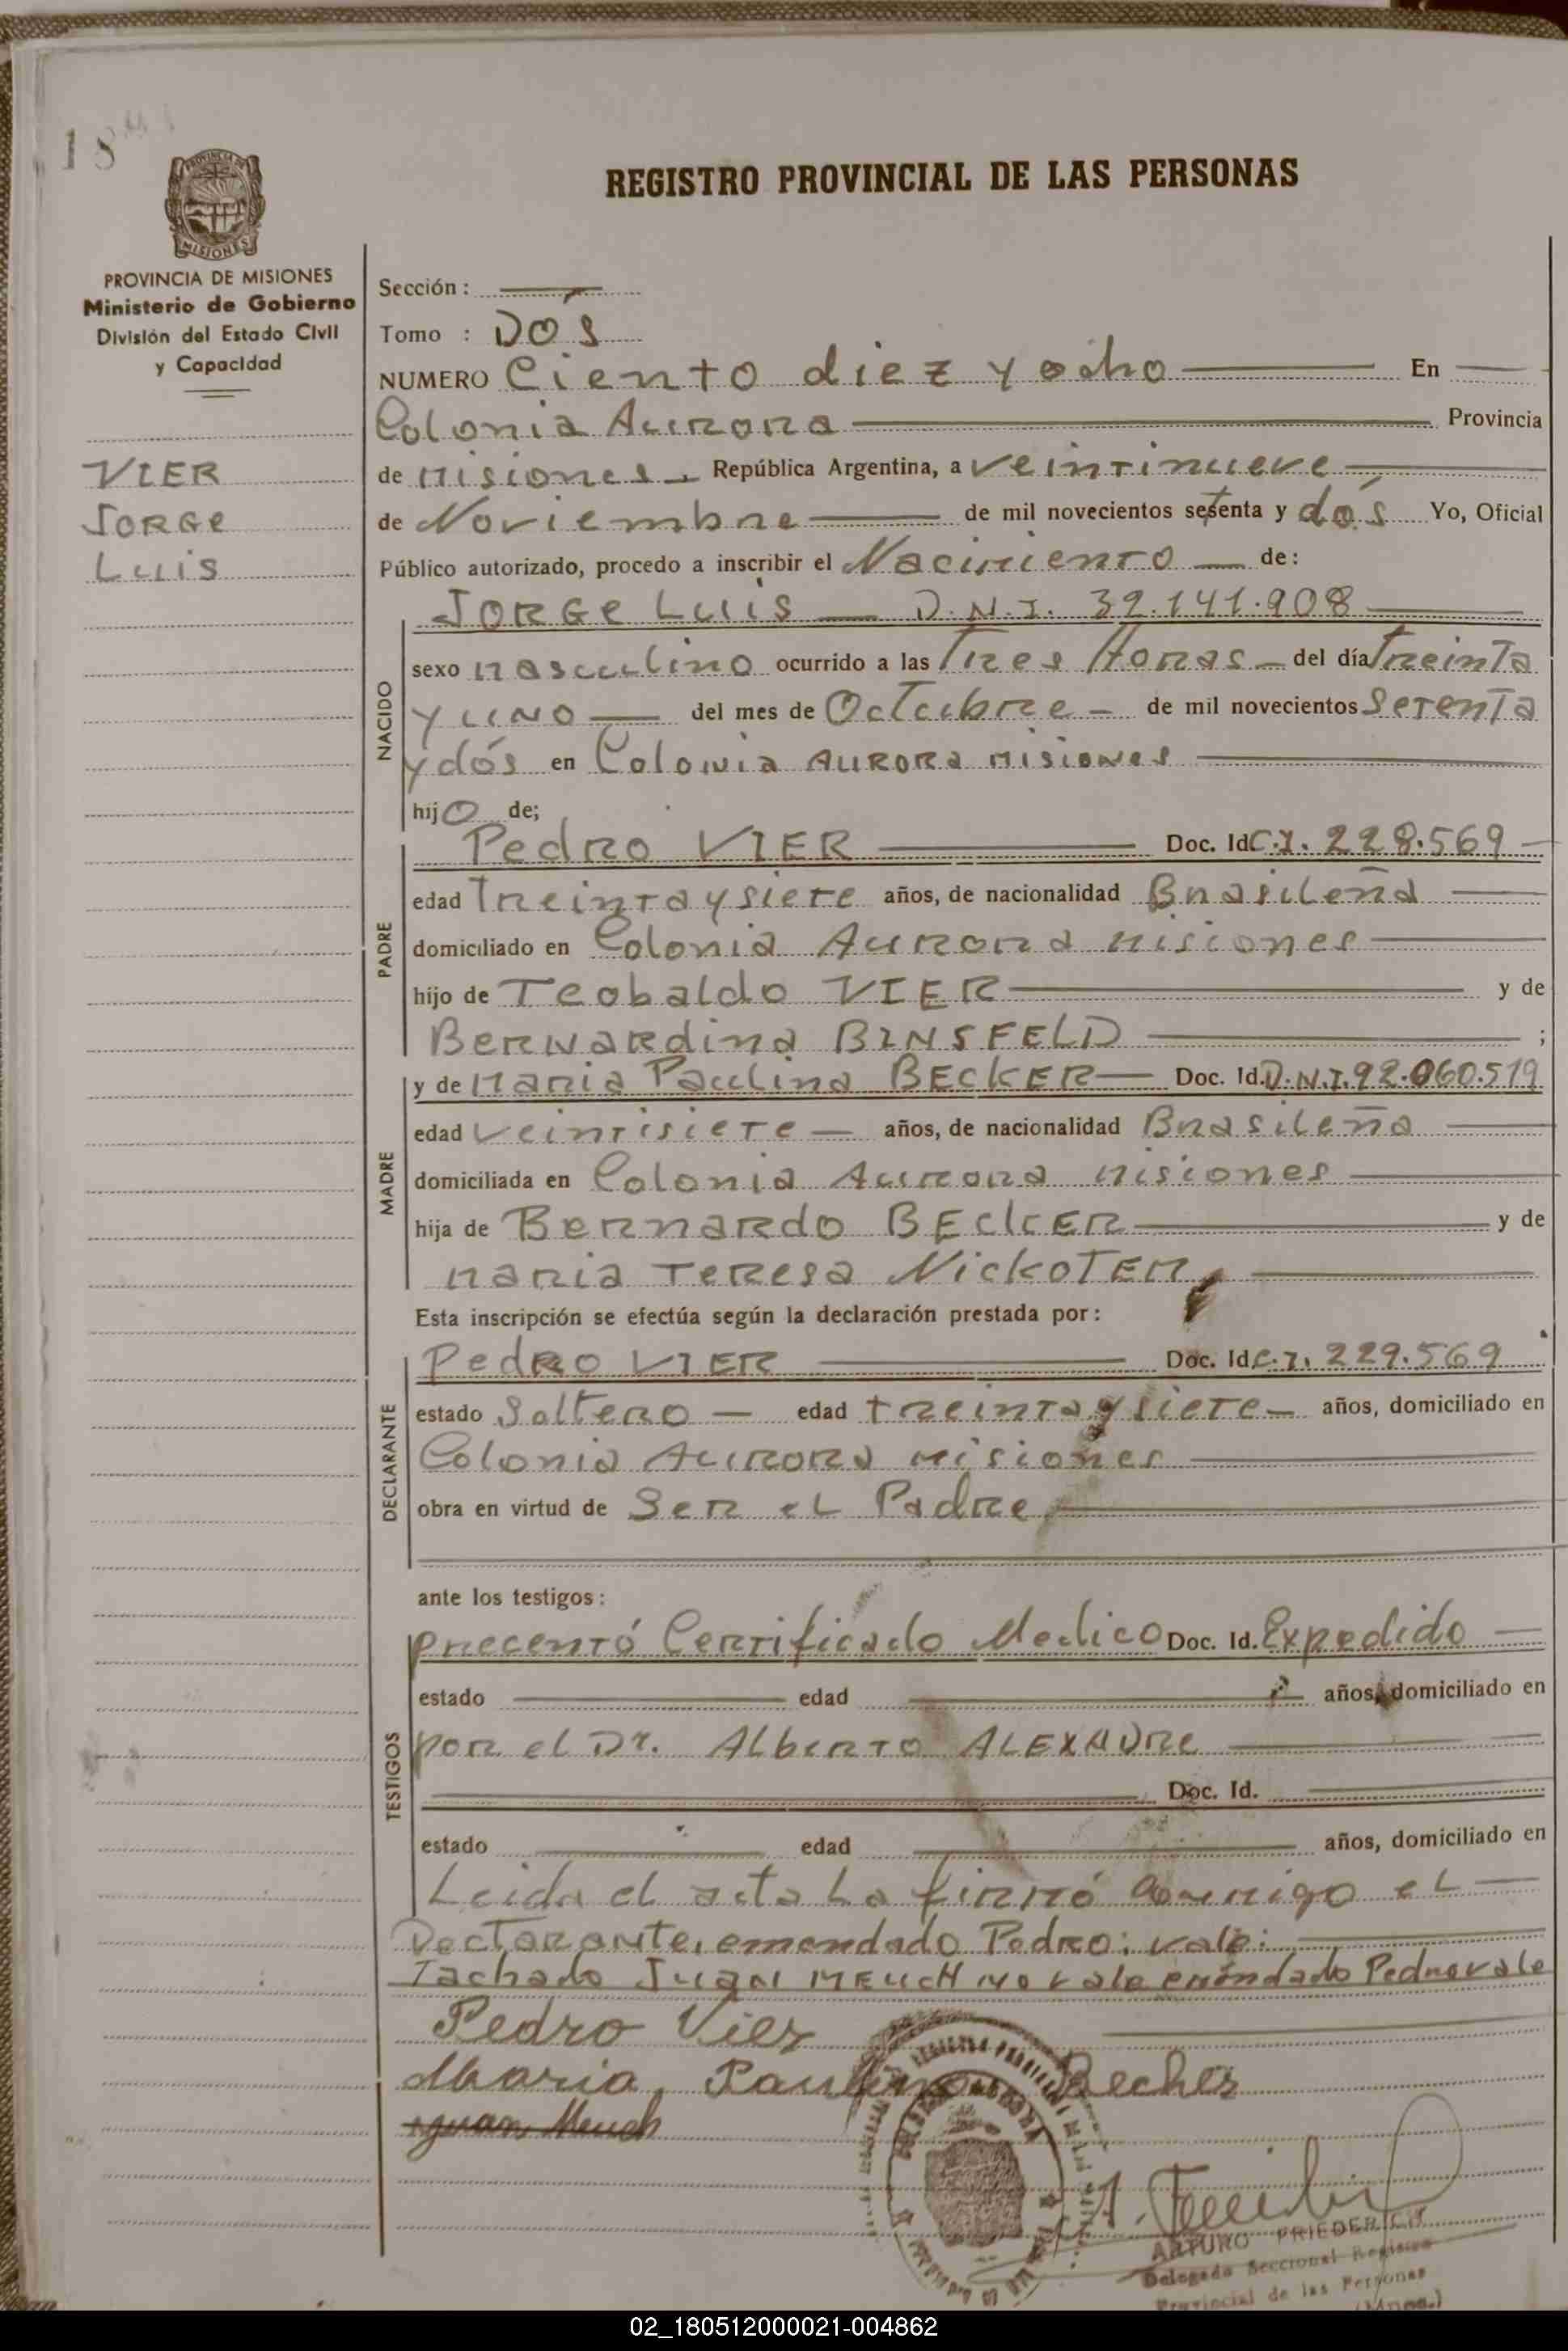 18
REGISTRO PROVINCIAL DE LAS PERSONAS
PROVINCIA DE MISIONES
Ministerio de Gobierno
División del Estado Civil
y Capacidad
VIER
JORGE
LUIS
Sección:
Tomo : DÓS
NUMERO Ciento diez y ocho En
Colonia Aurora Provincia
de Misiones República Argentina, a veintinueve
de Noviembre de mil novecientos setenta y dós Yo, Oficial
Público autorizado, procedo a inscribir el Nacimiento de:
JORGE LUIS D.N.I. 32.141.908
NACIDO
sexo masculino ocurrido a las Tres Horas del día Treinta
y UNO del mes de Octubre de mil novecientos Setenta
y dós en Colonia AURORA Misiones
hijo de;
PADRE
Pedro VIER Doc. Id C.I. 228.569
edad Treinta y siete años, de nacionalidad Brasileña
domiciliado en Colonia Aurora Misiones
hijo de Teobaldo VIER y de
Bernardina BINSFELD ;
MADRE
y de Maria Paulina BECKER Doc. Id. D.N.I. 92.060.519
edad veintisiete años, de nacionalidad Brasileña
domiciliada en Colonia Aurora Misiones
hija de Bernardo BECKER y de
Maria Teresa NickoTEM
Esta inscripción se efectúa según la declaración prestada por:
DECLARANTE
Pedro VIER Doc. Id C.I. 229.569
estado Soltero edad treinta y siete años, domiciliado en
Colonia Aurora Misiones
obra en virtud de Ser el Padre
ante los testigos:
TESTIGOS
precentó Certificado Medico Doc. Id. Expedido
estado edad años, domiciliado en
por el Dr. Alberto ALEXADRE
Doc. Id.
estado edad años, domiciliado en
Leida el acta la firmó conmigo el
Declarante, emendado Pedro: vale:
Tachado Juan MEUCH no vale enmendado Pedro vale
Pedro Vier
Maria Paulina Becker
Juan Meuch
ARTURO FRIEDERICH
Delegado Seccional Registro
Provincial de las Personas
(Mnes.)
02_180512000021-004862